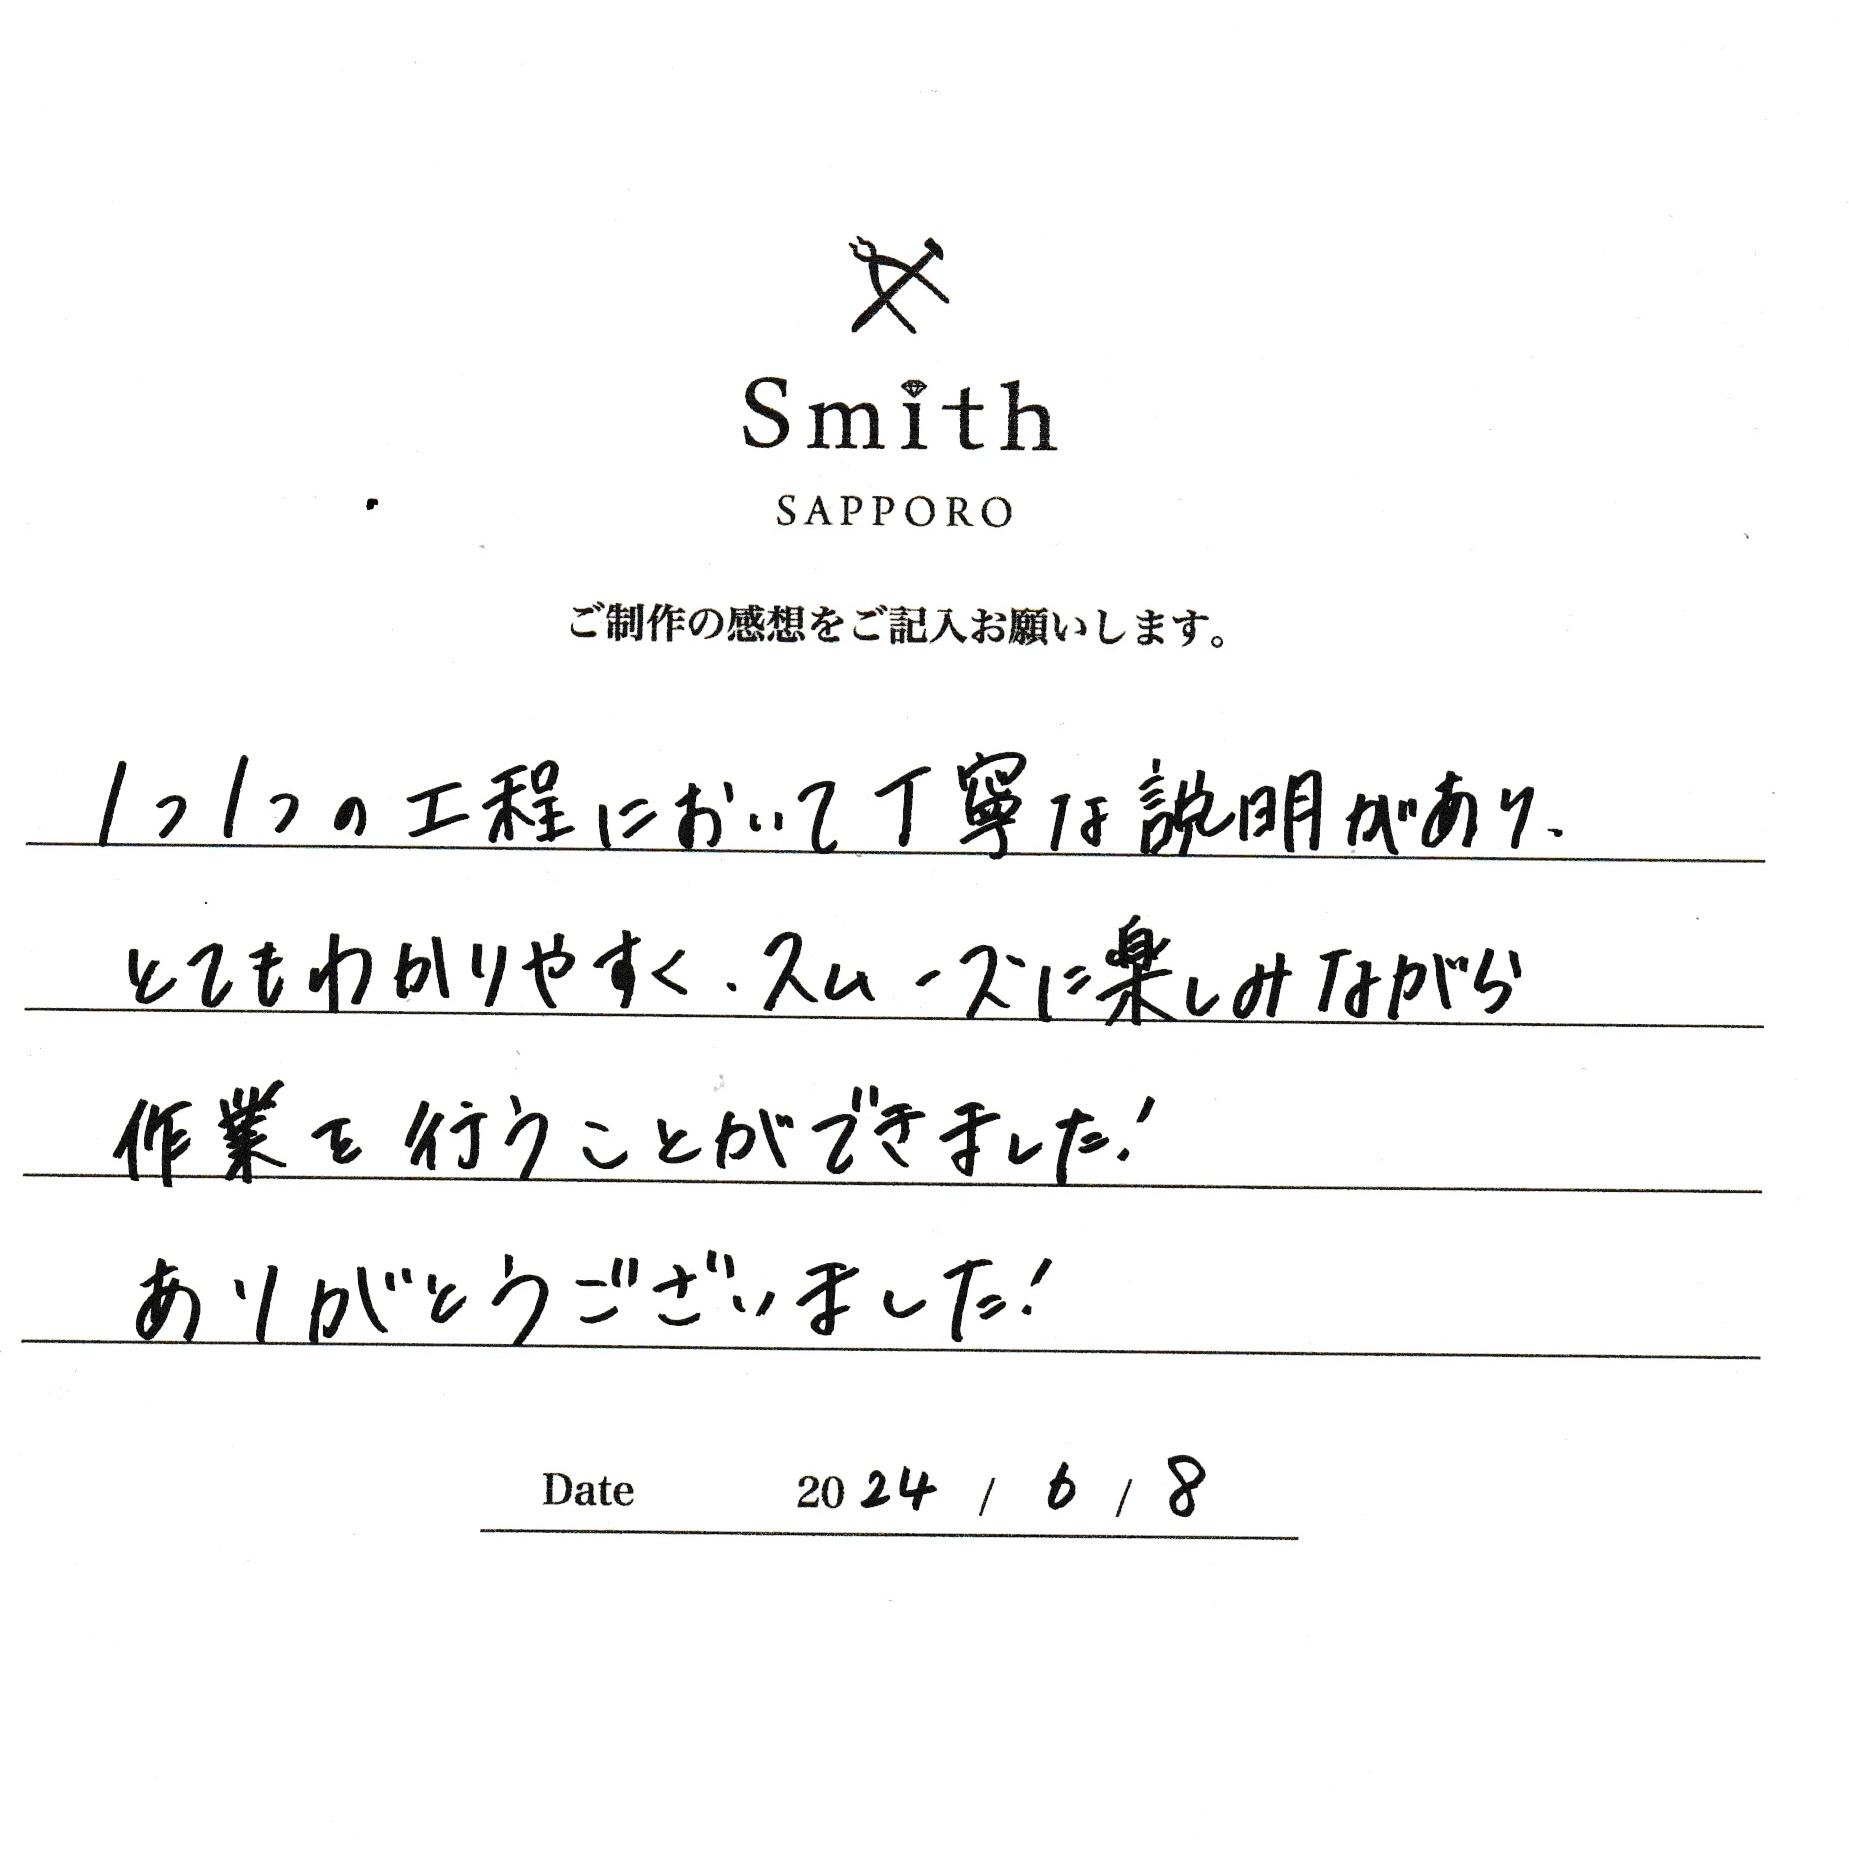 Smith
SAPPORO
ご制作の感想をご記入お願いします。
1つ1つの工程において丁寧な説明があり、
とてもわかりやすく、スムーズに楽しみながら
作業を行うことができました!
ありがとうございました!
Date 2024 / 6 / 8